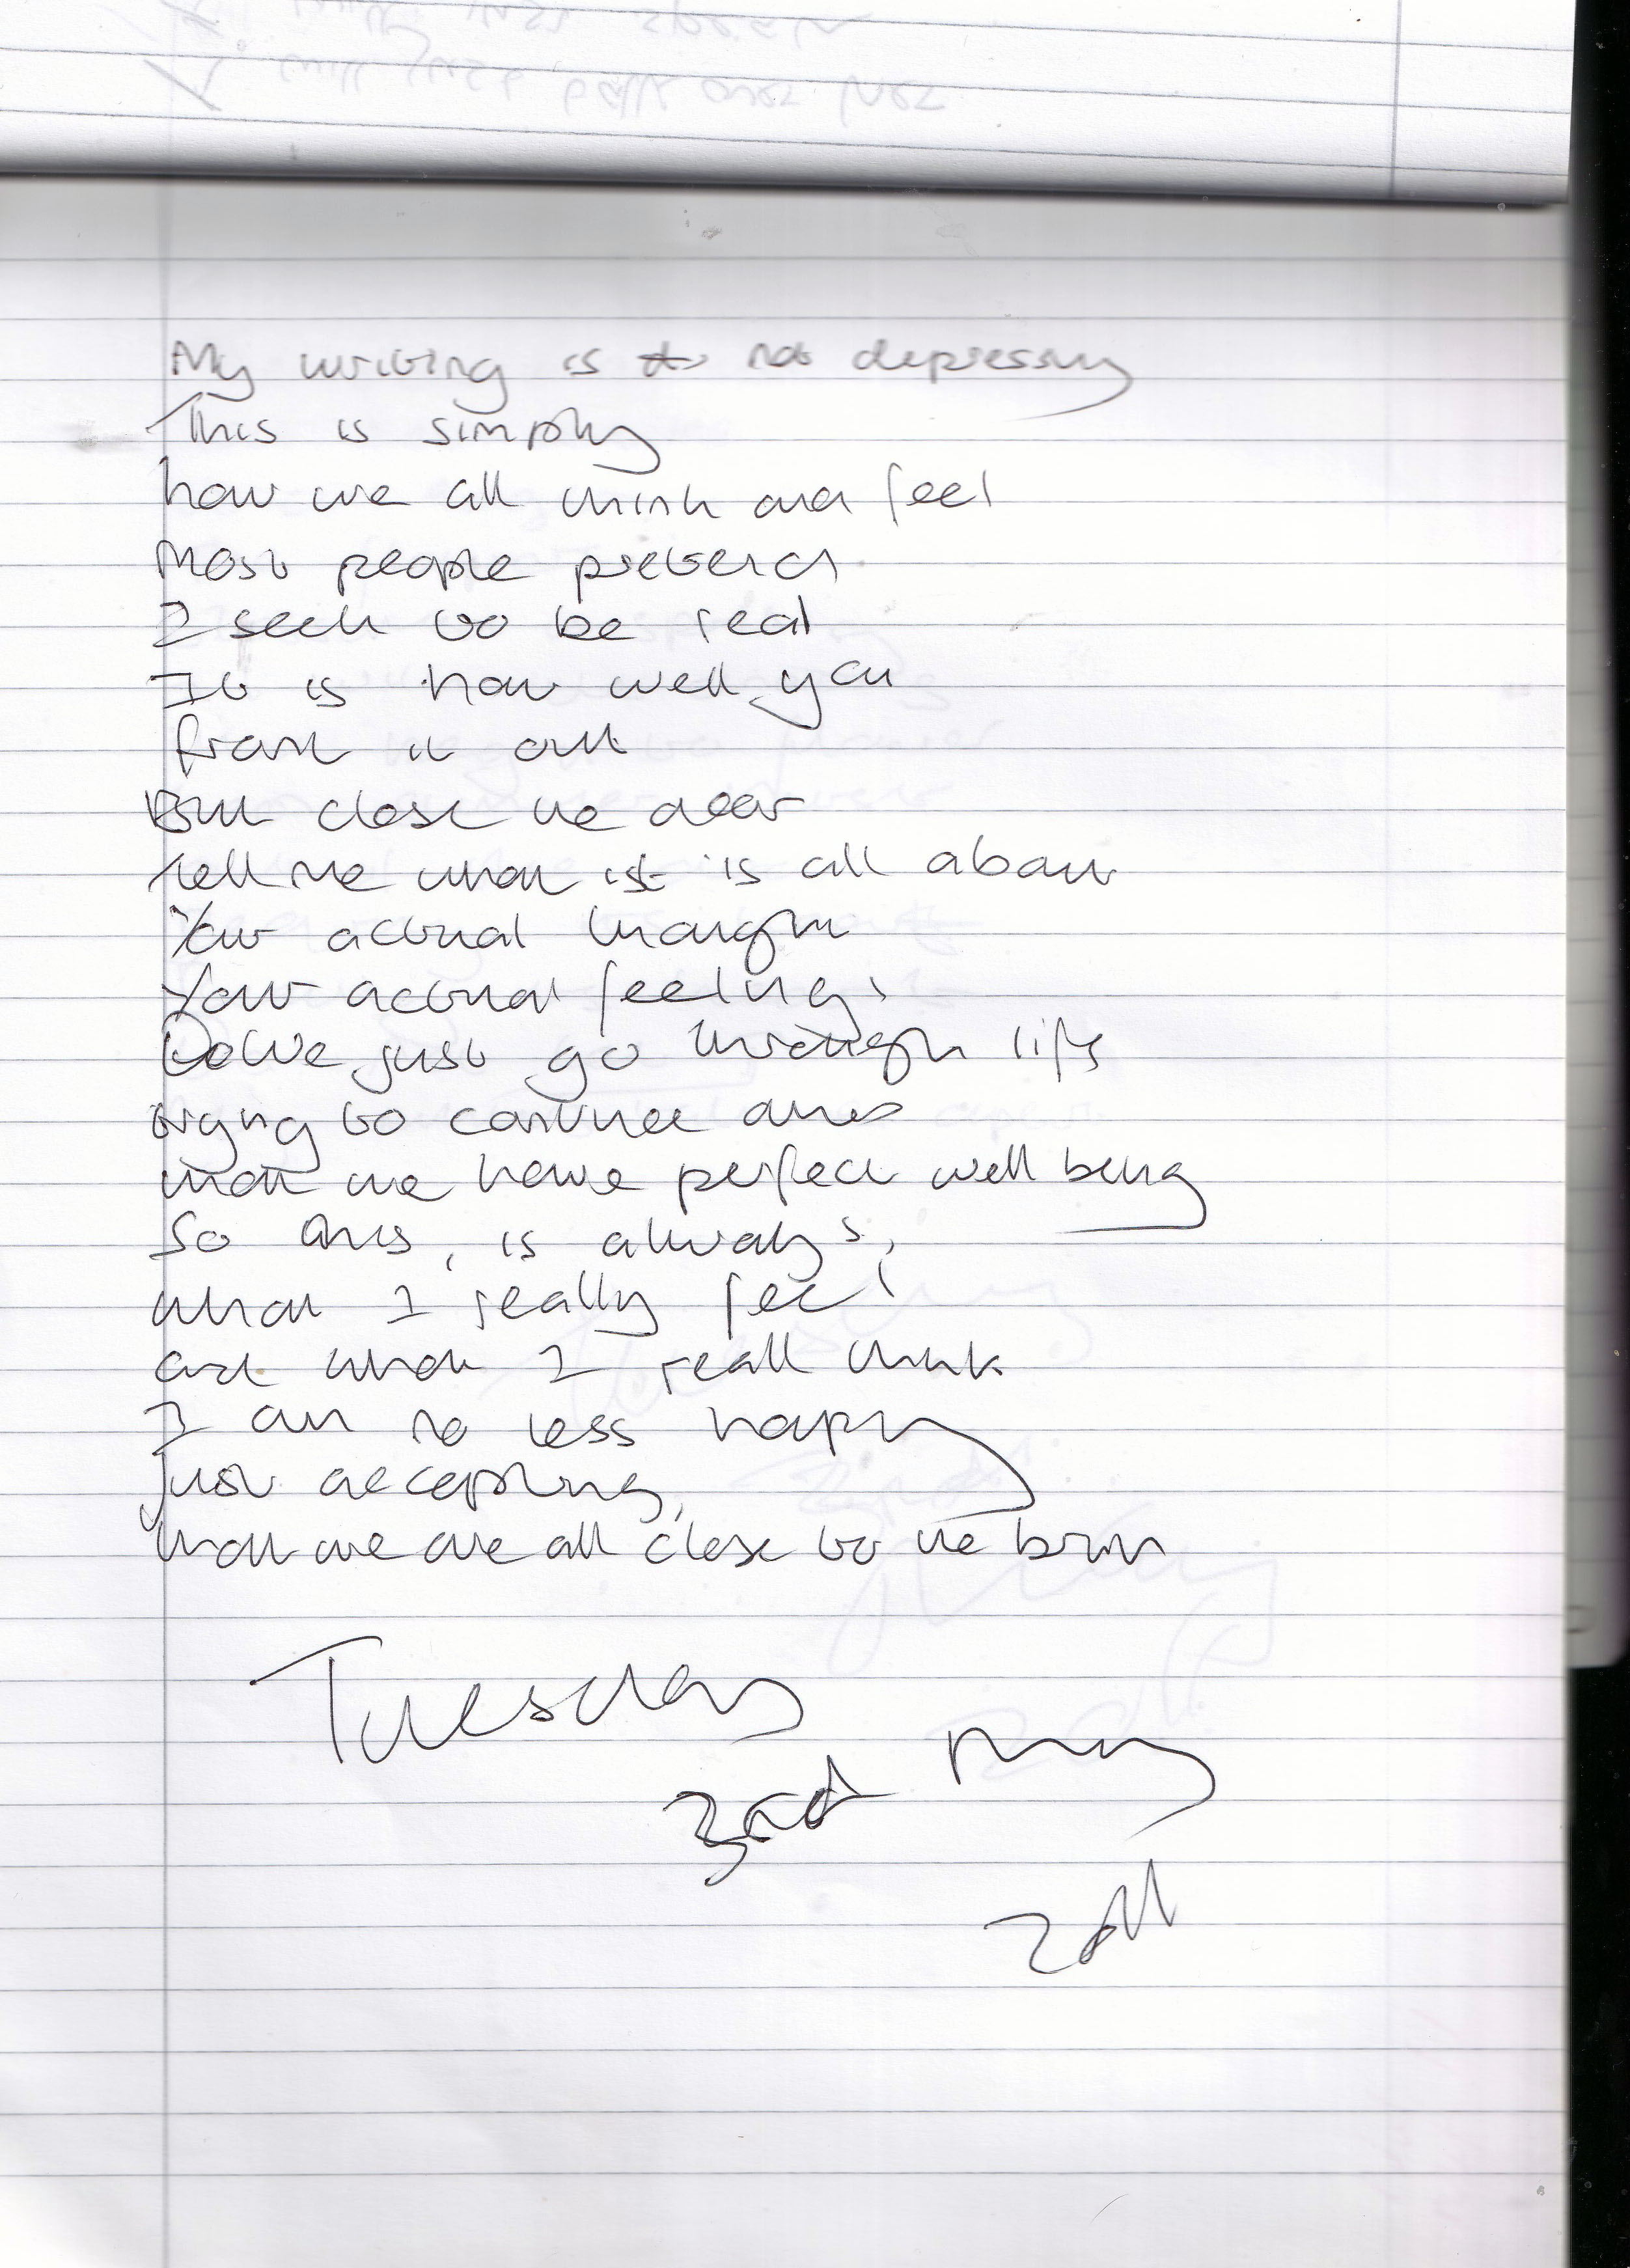 My writing is not depressing
This is simply
how we all think and feel
Most people pretend
I seek to be real
It is how well you
front it out
But close the door
tell me what is is all about
Your actual thought
Your actual feelings
Do We just go through life
trying to convince ones
that we have perfect well being
So this, is always,
what I really feel
and what I reall think
I am no less happy
just accepting,
that we are all close to the brim
Tuesday
3rd May
2011